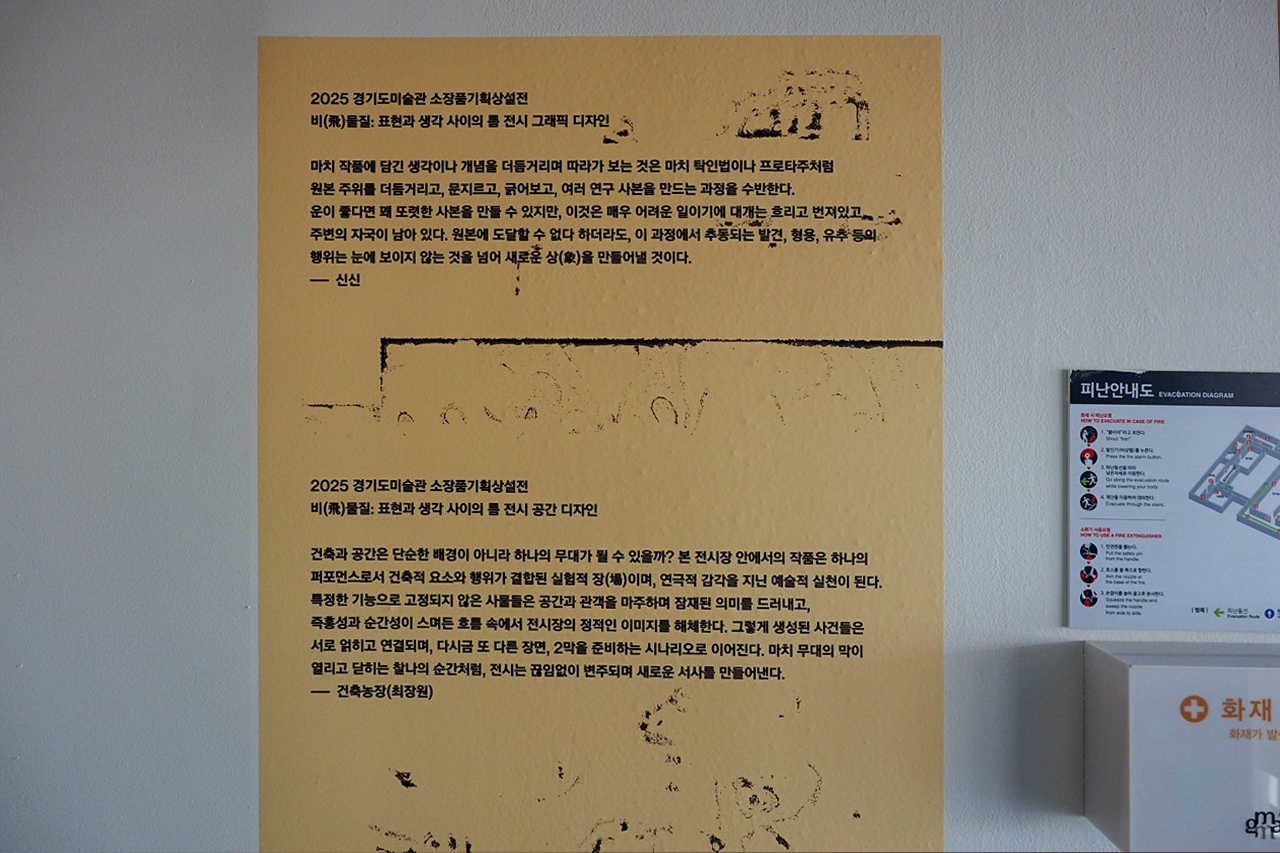 2025 경기도미술관 소장품기획상설전
비(飛)물질: 표현과 생각 사이의 틈 전시 그래픽 디자인
마치 작품에 담긴 생각이나 개념을 더듬거리며 따라가 보는 것은 마치 탁인법이나 프로타주처럼
원본 주위를 더듬거리고, 문지르고, 긁어보고, 여러 연구 사본을 만드는 과정을 수반한다.
운이 좋다면 꽤 또렷한 사본을 만들 수 있지만, 이것은 매우 어려운 일이기에 대개는 흐리고 번져있고
주변의 자국이 남아 있다. 원본에 도달할 수 없다 하더라도, 이 과정에서 추동되는 발견, 형용, 유추 등의
행위는 눈에 보이지 않는 것을 넘어 새로운 상(象)을 만들어낼 것이다.
— 신신
2025 경기도미술관 소장품기획상설전
비(飛)물질: 표현과 생각 사이의 틈 전시 공간 디자인
건축과 공간은 단순한 배경이 아니라 하나의 무대가 될 수 있을까? 본 전시장 안에서의 작품은 하나의
퍼포먼스로서 건축적 요소와 행위가 결합된 실험적 장(場)이며, 연극적 감각을 지닌 예술적 실천이 된다.
특정한 기능으로 고정되지 않은 사물들은 공간과 관객을 마주하며 잠재된 의미를 드러내고,
즉흥성과 순간성이 스며든 흐름 속에서 전시장의 정적인 이미지를 해체한다. 그렇게 생성된 사건들은
서로 얽히고 연결되며, 다시금 또 다른 장면, 2막을 준비하는 시나리오로 이어진다. 마치 무대의 막이
열리고 닫히는 찰나의 순간처럼, 전시는 끊임없이 변주되며 새로운 서사를 만들어낸다.
— 건축농장(최장원)
피난안내도 EVACUATION DIAGRAM
화재 시 피난요령
HOW TO EVACUATE IN CASE OF FIRE
1. "불이야"라고 외친다.
Shout "fire!"
2. 발신기(비상벨)를 누른다.
Press the fire alarm button.
3. 피난동선을 따라
낮은자세로 이동한다.
Go along the evacuation route
while lowering your body.
4. 계단을 이용하여 대피한다.
Evacuate through the stairs.
소화기 사용요령
HOW TO USE A FIRE EXTINGUISHER
1. 안전핀을 뽑는다.
Pull the safety pin
from the handle.
2. 호스를 불 쪽으로 향한다.
Aim the nozzle at
the base of the fire.
3. 손잡이를 눌러 골고루 분사한다.
Squeeze the handle and
sweep the nozzle
from side to side.
[범례] 피난동선
Evacuation Route
화재
화재가